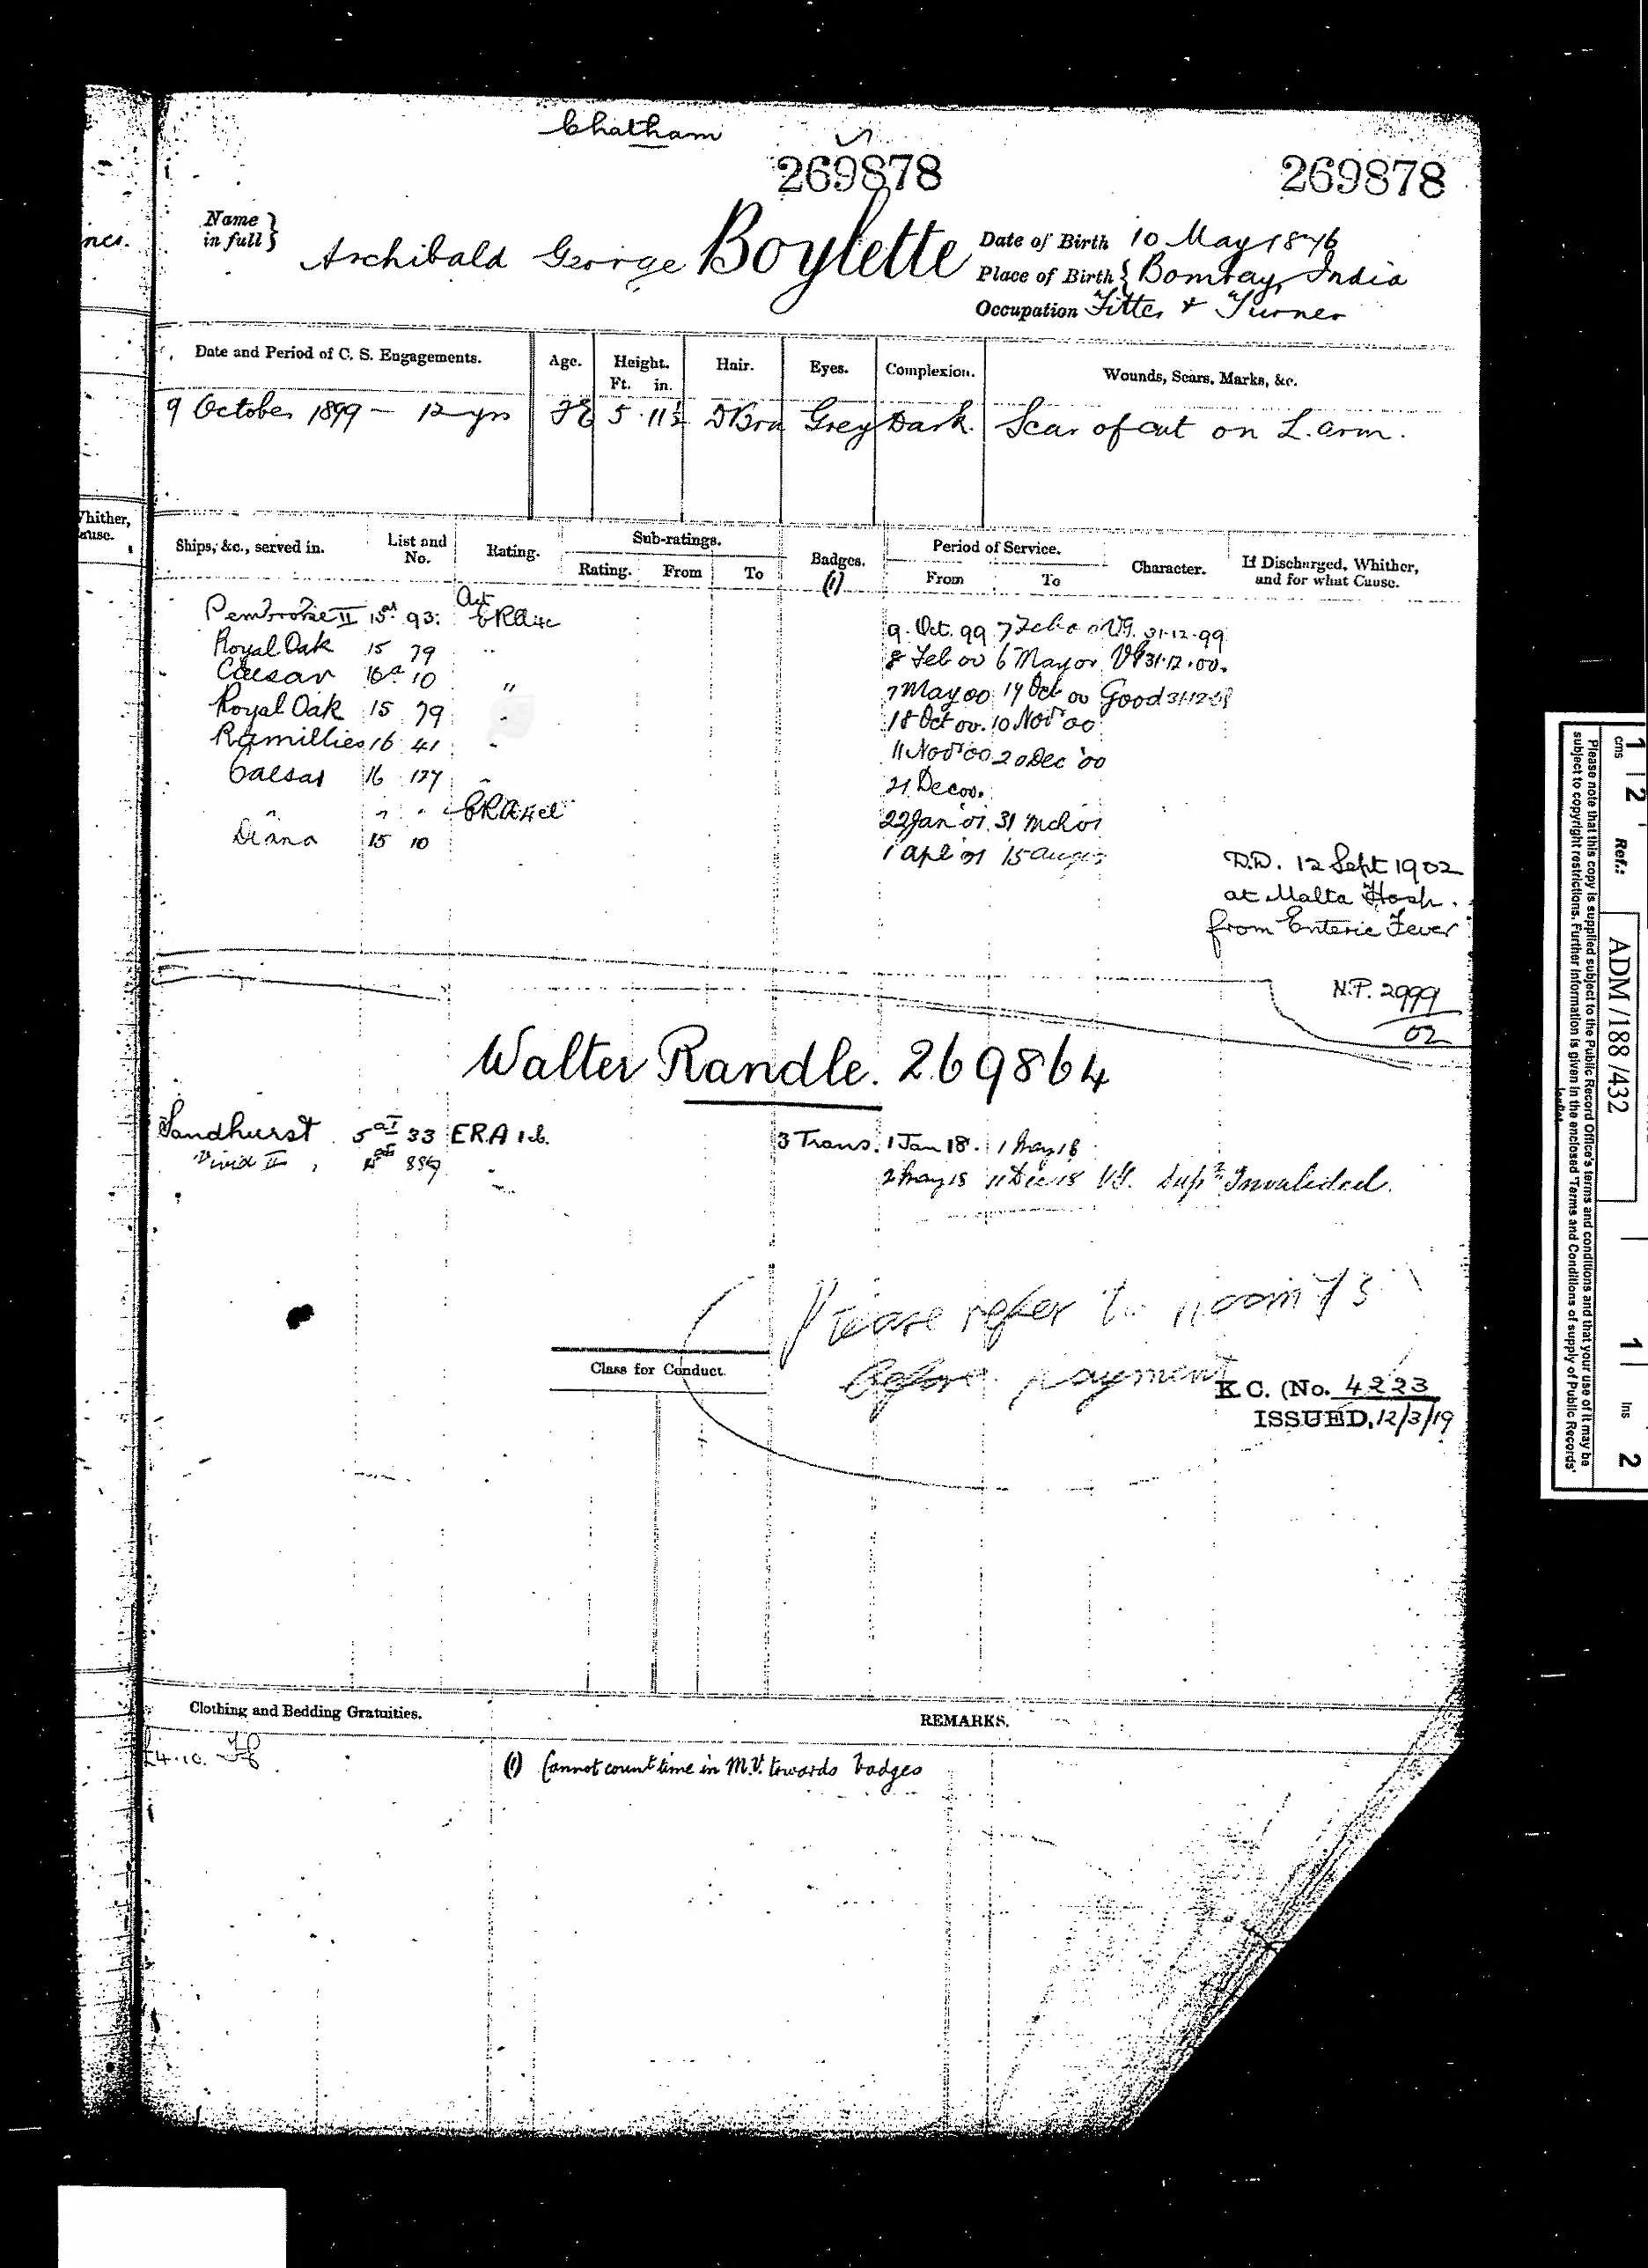 Chatham
269878 269878
Name in full } Archibald George Boylette
Date of Birth 10 May 1876
Place of Birth { Bombay, India
Occupation Fitter & Turner
Date and Period of C. S. Engagements. Age. Height. Ft. in. Hair. Eyes. Complexion. Wounds, Scars, Marks, &c.
9 October 1899 - 12 yrs 5 . 11½ D Brn Grey Dark. Scar of cut on L. arm.
Whither,
ause.
Ships, &c., served in. List and No. Rating. Sub-ratings. Rating. From To Badges. (1) Period of Service. From To Character. If Discharged, Whither, and for what Cause.
Pembroke II 15 93. Act ERA4c 9. Oct. 99 7 Feb VG. 31.12.99
Royal Oak 15 79 " 8 Feb 00 6 May 00 VG 31.12.00.
Caesar 16 10 " 7 May 00 17 Oct 00 Good
Royal Oak 15 79 " 18 Oct 00. 10 Nov 00
Ramillies 16 41 " 11 Nov 00 20 Dec 00
Caesar 16 " 21 Dec 00.
" " " ERA4cl 22 Jan 01. 31 Mch 01
Diana 15 10 1 Apl 01 15 Aug
D.D. 12 Sept 1902
at Malta Hosp.
from Enteric Fever
N.P. 2999
02
Walter Randle. 269864
Sandhurst 33 ERA 1 cl. 3 Trans. 1 Jan 18. 1 May 18
Vivid II " 2 May 18 11 Dec 18 VG. Invalided.
Please refer to room 73
before payment
Class for Conduct.
K C. (No. 4223
ISSUED. 12/3/19
Clothing and Bedding Gratuities. REMARKS.
£4.10. (1) Cannot count time in M.V. towards badges
1 2 cms Ref.: ADM /188 /432 1 ins 2
Please note that this copy is supplied subject to the Public Record Office's terms and conditions and that your use of it may be
subject to copyright restrictions. Further information is given in the enclosed 'Terms and Conditions of supply of Public Records'
leaflet